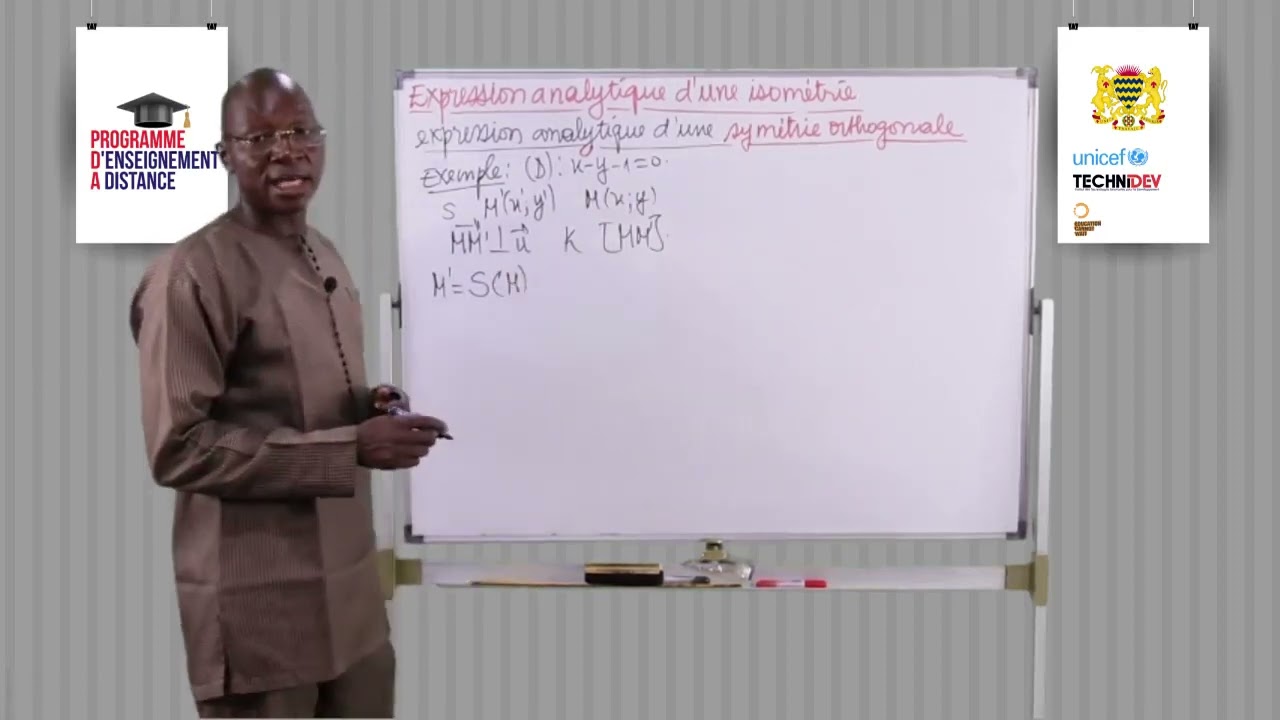 PROGRAMME
D'ENSEIGNEMENT
A DISTANCE
Expression analytique d'une isométrie
expression analytique d'une symétrie orthogonale
Exemple: (D): x-y-1=0.
S M'(x',y') M(x;y)
MM'⊥u K [MM'].
M'=S(M)
unicef
TECHNIDEV
EDUCATION
CANNOT
WAIT